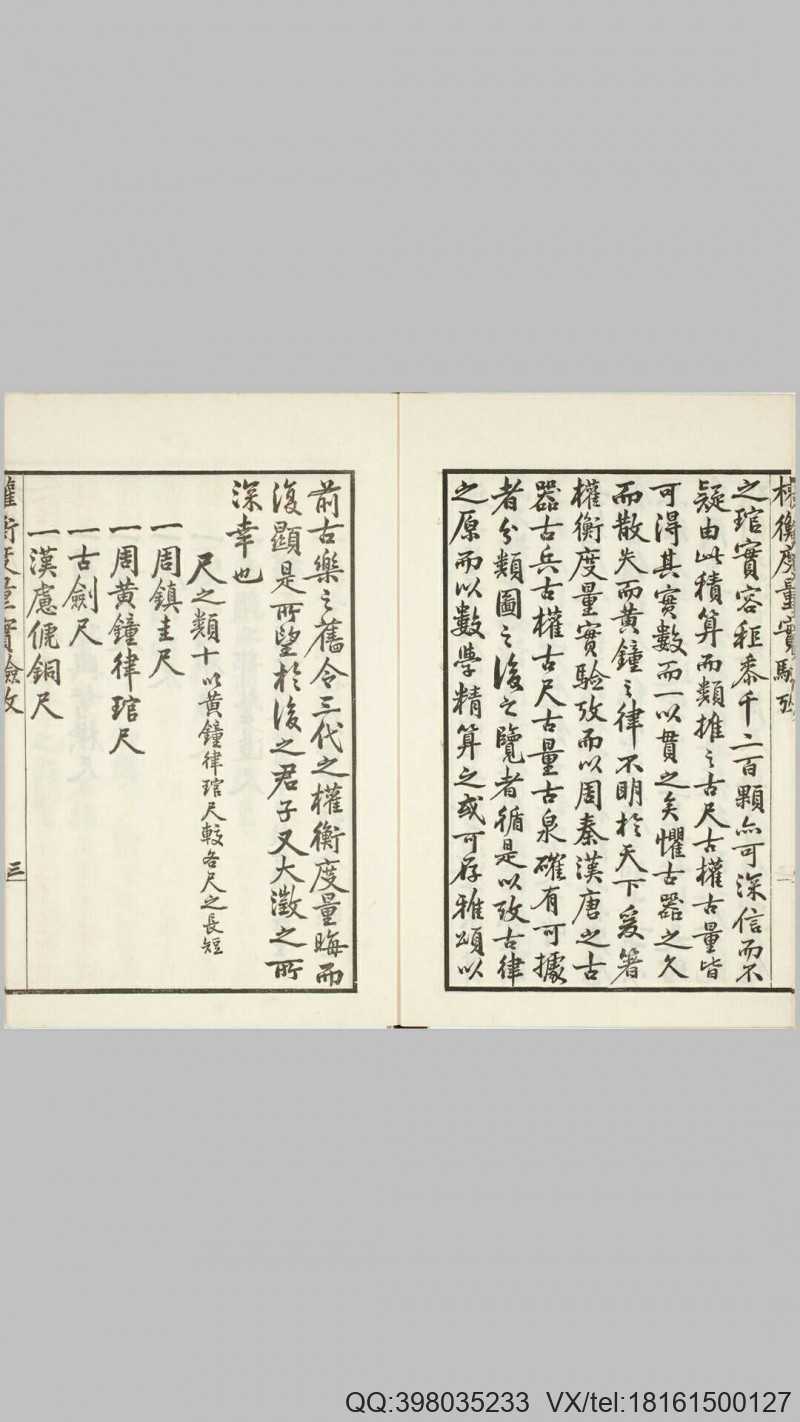 權衡度量實驗攷
二
之琯實容秬黍千二百顆亦可深信而不
疑由此積算而類推之古尺古權古量皆
可得其實數而一以貫之矣懼古器之久
而散失而黃鐘之律不明於天下爰箸
權衡度量實驗攷而以周秦漢唐之古
器古兵古權古尺古量古泉確有可據
者分類圖之後之覽者循是以攷古律
之原而以數學精算之或可存雅頌以
前古樂之舊令三代之權衡度量晦而
復顯是所望於後之君子又大澂之所
深幸也
尺之類十以黃鐘律琯尺較各尺之長短
一周鎮圭尺
一周黃鐘律琯尺
一古劍尺
一漢慮俿銅尺
權衡度量實驗攷
三
QQ:398035233 VX/tel:18161500127